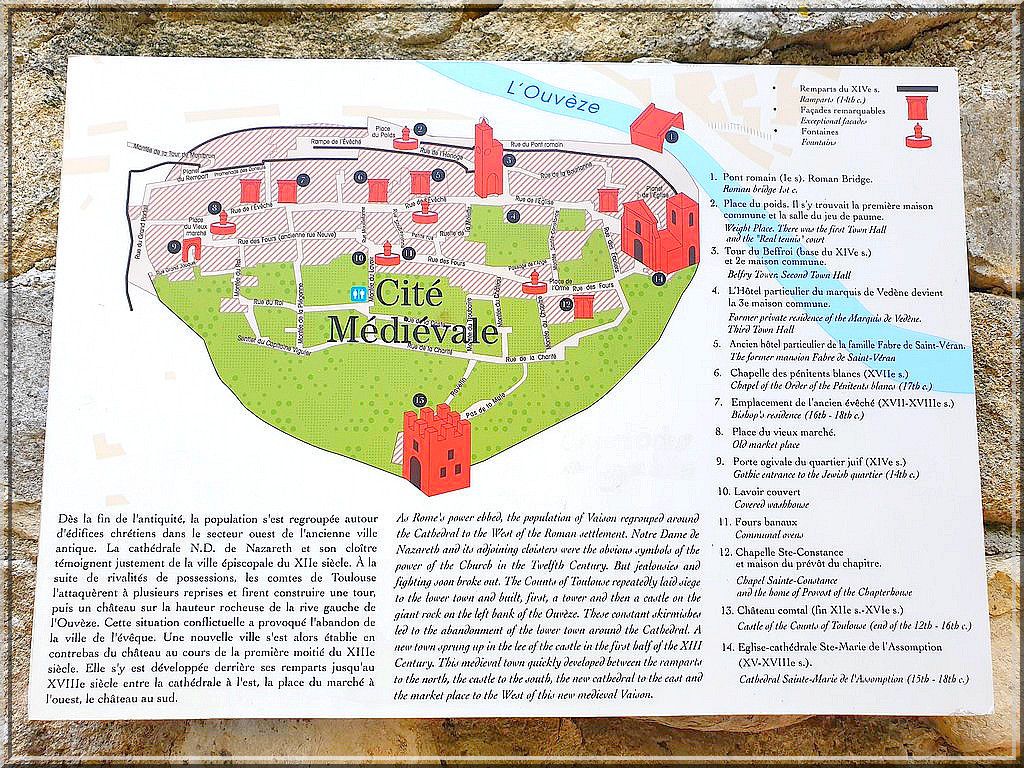 L'Ouvèze
Remparts du XIVe s.
Ramparts (14th c.)
Façades remarquables
Exceptional facades
Fontaines
Fountains
Place
du Poids
2
1
Montée de la Tour du Montbrun
Rampe de l'Évêché
Rue de l'Horloge
Rue du Pont romain
3
Planet
du Rempart
Promenade des Barelles
Rue de la Baunanne
Planet
de l'Église
7
6
5
Rue de l'Évêché
Rue de l'Évêché
Rue de l'Église
4
8
Place
du Vieux
marché
Petite rue
Rue des Fours (ancienne rue Neuve)
9
10
11
Rue des Fours
Passage de l'Ange
14
Place de
l'Orme
Rue des Fours
12
Rue du Roi
Cité
Médiévale
Sentier du Capitaine Viguier
Rue de la Charité
Rue de la Charité
Ravelin
Pas de la Mule
13
1. Pont romain (Ie s). Roman Bridge.
Roman bridge 1st c.
2. Place du poids. Il s'y trouvait la première maison
commune et la salle du jeu de paume.
Weight Place. There was the first Town Hall
and the "Real tennis" court
3. Tour du Beffroi (base du XIVe s.)
et 2e maison commune.
Belfry Tower. Second Town Hall
4. L'Hôtel particulier du marquis de Vedène devient
la 3e maison commune.
Former private residence of the Marquis de Vedène.
Third Town Hall
5. Ancien hôtel particulier de la famille Fabre de Saint-Véran.
The former mansion Fabre de Saint-Véran
6. Chapelle des pénitents blancs (XVIIe s.)
Chapel of the Order of the Pénitents blancs (17th c.)
7. Emplacement de l'ancien évêché (XVII-XVIIIe s.)
Bishop's residence (16th - 18th c.)
8. Place du vieux marché.
Old market place
9. Porte ogivale du quartier juif (XIVe s.)
Gothic entrance to the Jewish quartier (14th c.)
10. Lavoir couvert
Covered washhouse
11. Fours banaux
Communal ovens
12. Chapelle Ste-Constance
et maison du prévôt du chapitre.
Chapel Sainte-Constance
and the home of Provost of the Chapterhouse
13. Château comtal (fin XIIe s.-XVIe s.)
Castle of the Counts of Toulouse (end of the 12th - 16th c.)
14. Eglise-cathédrale Ste-Marie de l'Assomption
(XV-XVIIIe s.).
Cathedral Sainte-Marie de l'Assomption (15th - 18th c.)
Dès la fin de l'antiquité, la population s'est regroupée autour
d'édifices chrétiens dans le secteur ouest de l'ancienne ville
antique. La cathédrale N.D. de Nazareth et son cloître
témoignent justement de la ville épiscopale du XIIe siècle. À la
suite de rivalités de possessions, les comtes de Toulouse
l'attaquèrent à plusieurs reprises et firent construire une tour,
puis un château sur la hauteur rocheuse de la rive gauche de
l'Ouvèze. Cette situation conflictuelle a provoqué l'abandon de
la ville de l'évêque. Une nouvelle ville s'est alors établie en
contrebas du château au cours de la première moitié du XIIIe
siècle. Elle s'y est développée derrière ses remparts jusqu'au
XVIIIe siècle entre la cathédrale à l'est, la place du marché à
l'ouest, le château au sud.
As Rome's power ebbed, the population of Vaison regrouped around
the Cathedral to the West of the Roman settlement. Notre Dame de
Nazareth and its adjoining cloisters were the obvious symbols of the
power of the Church in the Twelfth Century. But jealousies and
fighting soon broke out. The Counts of Toulouse repeatedly laid siege
to the lower town and built, first, a tower and then a castle on the
giant rock on the left bank of the Ouvèze. These constant skirmishes
led to the abandonment of the lower town around the Cathedral. A
new town sprung up in the lee of the castle in the first half of the XIII
Century. This medieval town quickly developed between the ramparts
to the north, the castle to the south, the new cathedral to the east and
the market place to the West of this new medieval Vaison.